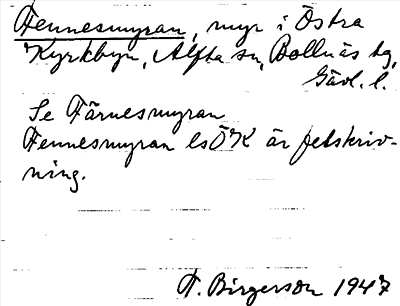 Fennesmyran, myr i Östra
Kyrkbyn, Alfta sn, Bollnäs tg,
Gävl. l.
Se Färnesmyran
Fennesmyran lsÖK är felskriv-
ning.
F. Birgerson 1947